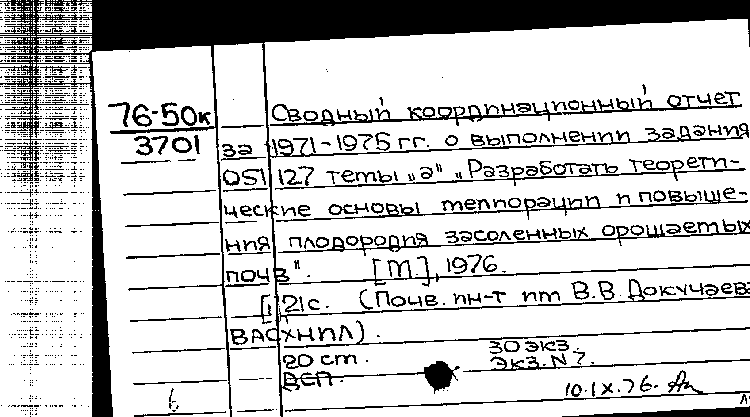 76-50к
3701
Сводный координационный отчет
за 1971-1975 гг. о выполнении задания
051 127 темы „а" „Разработать теорети-
ческие основы мелиорации и повыше-
ния плодородия засоленных орошаемых
почв". [М.], 1976.
21 с. (Почв. ин-т им В.В. Докучаева
ВАСХНИЛ).
20 см. 30 экз.
ДСП. Экз. N 7.
10.IX.76.